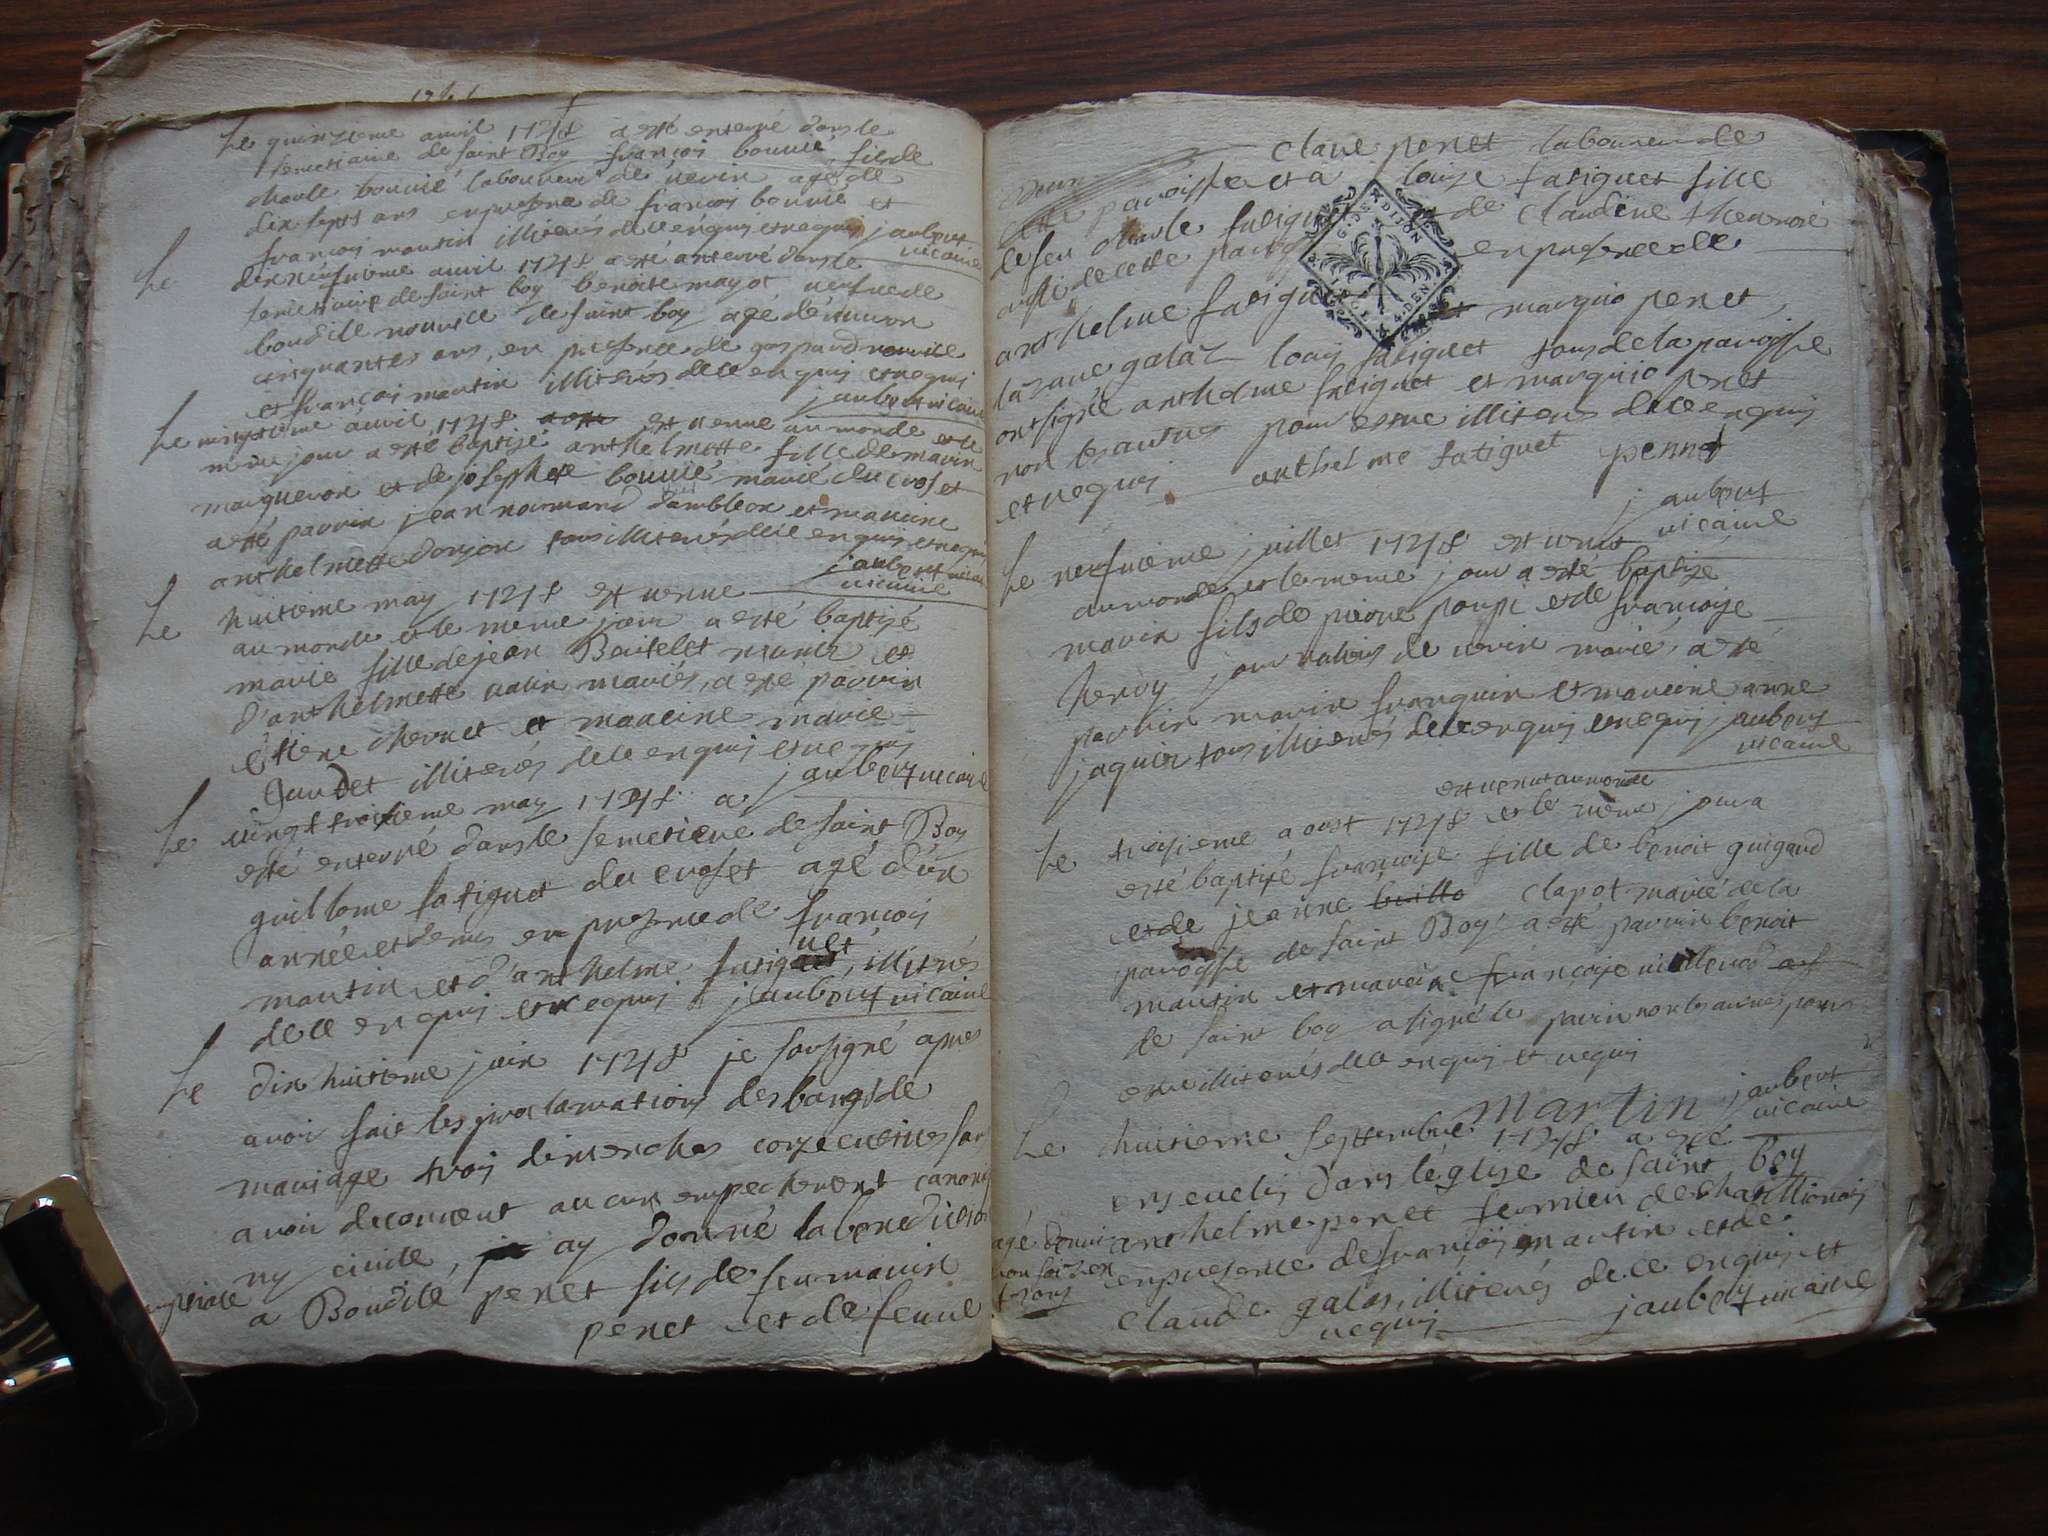 Le quinzieme avril 1748 a esté enterré dans le
semetiaire de saint Boy françois bouvié, fils de
charle bouvié laboureur de nevin agé de
dix sept ans en presence de françois bouvié et
françois martin illiterés de ce enquis et requis jaubert
vicaire
Le dixneufvieme avril 1748 a esté anterré dans le
semetiaire de saint boy benoite mayot veufve de
boudile nouvelle de saint boy agé d'environ
cinquantes ans, en presence de gaspard nouvelle
et françois martin illiterés de ce enquis et requis
jaubert vicaire
Le vingtieme avril 1748 est venue au monde et le
même jour a esté baptizé anthelmette fille de marin
margueron et de josephete bouvié marié du croset
a esté parrin jean normand d'ambleon et marreine
anthelmette donjon tous illiterés de ce enquis et requis
jaubert vicaire
Le huitieme may 1748 est venue
au monde et le meme jour a esté baptizé
marie fille de jean Boutelet munier et
d'anthelmette mariés, a esté parrin
Etiene chernet et marreine marie
Gaudet illiterés de ce enquis et requis
jaubert vicaire
Le vingt troisieme may 1748 a
esté enterré dans le semetiere de saint Boy
guillome fatiguet du croset agé d'un
année et demis en presence de françois
martin et d'anthelme fatiguet, illitrés
de ce enquis et requis jaubert vicaire
Le dix huitieme juin 1748 je sousigné apres
avoir fait les proclamations des bangs de
mariage trois dimenches conzecutives sans
avoir decouvert aucun empechement canoni
ny civile, ay donné la benediction
a Boudilé penet fils de feu marin
penet et de feuue
claue penet laboureur de
cette paroisse et a louize fatiguet fille
de feu charle fatiguet et de claudine thevenoié
aussi de cette paroisse en presence de
anthelme fatiguet et marquio penet
lazare galaz louis fatiguet tous de la paroisse
ont signé anthelme fatiguet et marquio penet
non les autres pour estre illiterés de ce enquis
et requis anthelme fatiguet pennet
jaubert
vicaire
G. DE DIJON
4. DEN.
Le neufvieme juillet 1748 est venut
au monde et le meme jour a esté baptizé
marin fils de pierre poupi et de françoise
hervy journaliers de nevin marié, a esté
parrin marin franquin et marreine anne
jaquin tous illiterés de ce enquis et requis jaubert
vicaire
est venut au monde
Le troisieme aoust 1748 et le même jour a
esté baptizé françoise fille de benoit guigaud
et de jeanne clapot marié de la
paroisse de saint Boy a esté parrin benoit
martin et marreine françoise
de saint boy a signé le parrin non les autres pour
estre illiterés de ce enquis et requis
martin jaubert
vicaire
Le huitieme septembre 1748 a esté
ensevelis dans l'église de saint boy
anthelme penet fermier de chatillionois
agé d'envi
ron soixen
t ans
en presence de françois martin et de
claude galas, illiterés de ce enquis et
requis jaubert vicaire